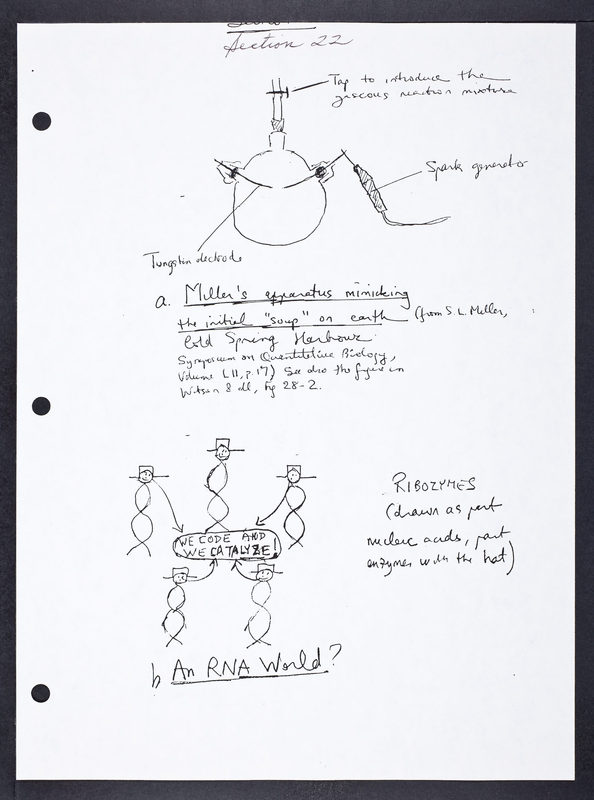 Section 22
Tap to introduce the
gaseous reaction mixture
Spark generator
Tungsten electrode
a. Miller's apparatus mimicking
the initial "soup" on earth (from S.L. Miller,
Cold Spring Harbour
Symposium on Quantitative Biology,
Volume LII, p.17) See also the figure in
Watson & al, Fig 28-2.
WE CODE AND
WE CATALYZE!
RIBOZYMES
(drawn as part
nucleic acids, part
enzymes with the hat)
b An RNA World?